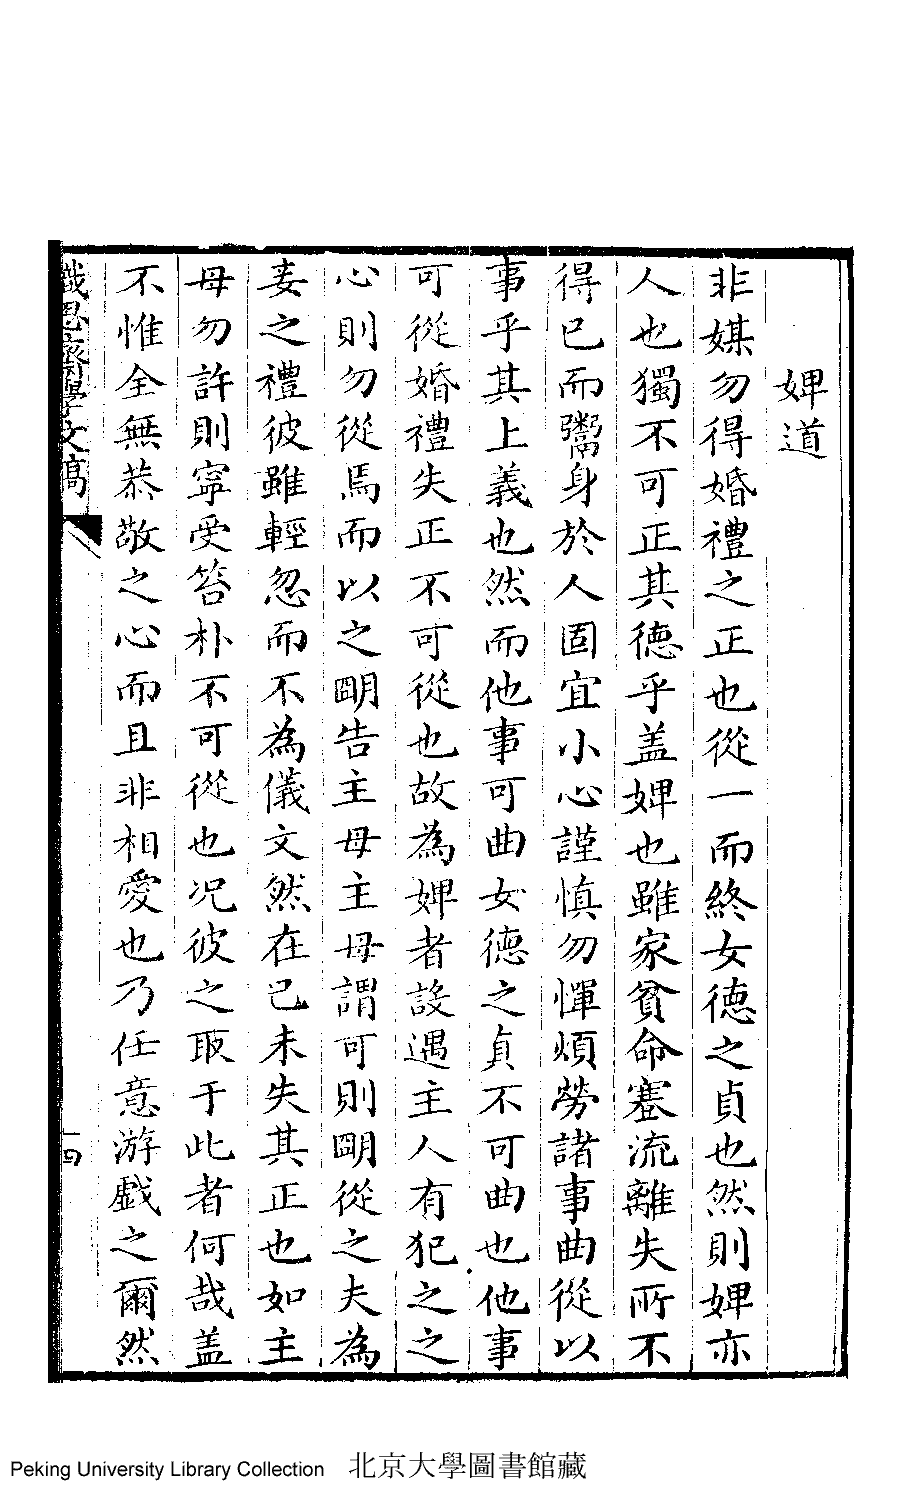 婢道
非媒勿得婚禮之正也從一而終女德之貞也然則婢亦
人也獨不可正其德乎盖婢也雖家貧命蹇流離失所不
得已而鬻身於人固宜小心謹慎勿憚煩勞諸事曲從以
事乎其上義也然而他事可曲女德之貞不可曲也他事
可從婚禮失正不可從也故為婢者設遇主人有犯之之
心則勿從焉而以之明告主母主母謂可則明從之夫為
妾之禮彼雖輕忽而不為儀文然在己未失其正也如主
母勿許則寧受笞朴不可從也况彼之取于此者何哉盖
不惟全無恭敬之心而且非相愛也乃任意游戲之爾然
識思齋學文稿
十四
Peking University Library Collection 北京大學圖書館藏